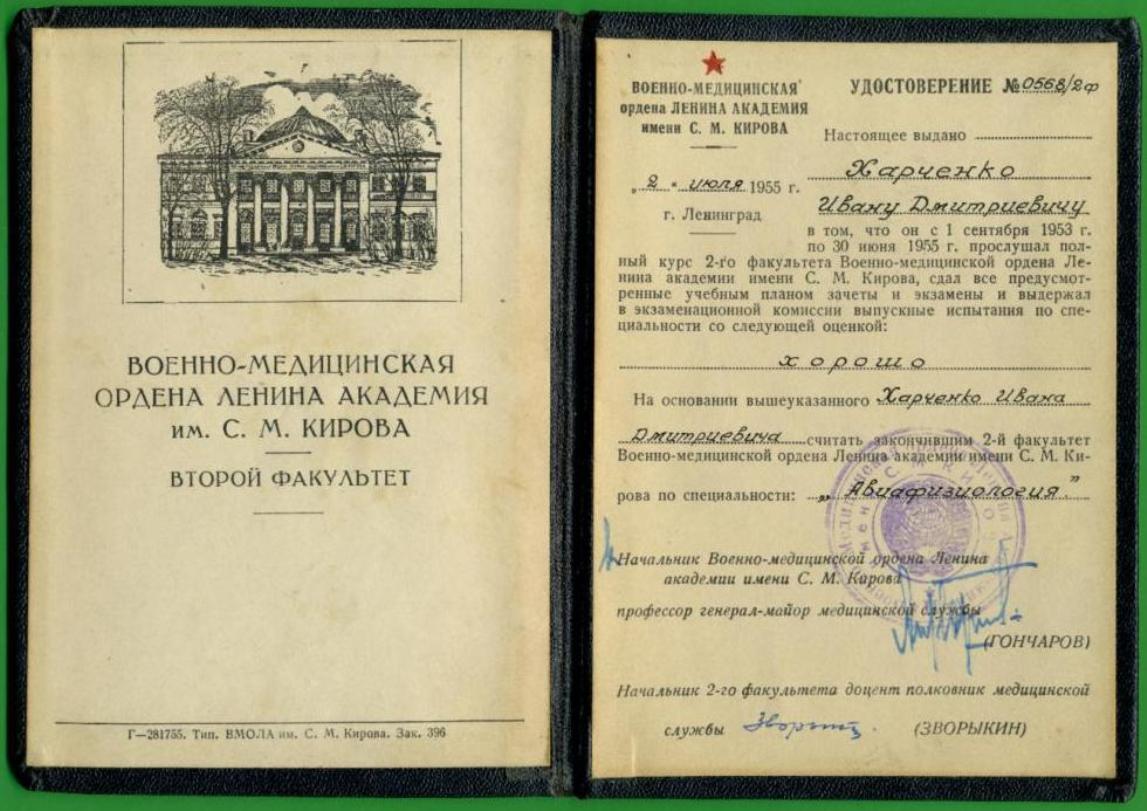 ВОЕННО-МЕДИЦИНСКАЯ
ОРДЕНА ЛЕНИНА АКАДЕМИЯ
им. С. М. КИРОВА
ВТОРОЙ ФАКУЛЬТЕТ
Г—281755. Тип. ВМОЛА им. С. М. Кирова. Зак. 396
ВОЕННО-МЕДИЦИНСКАЯ
ордена ЛЕНИНА АКАДЕМИЯ
имени С. М. КИРОВА
„2“ июля 1955 г.
г. Ленинград
УДОСТОВЕРЕНИЕ № 0568/2ф
Настоящее выдано
Харченко
Ивану Дмитриевичу
в том, что он с 1 сентября 1953 г.
по 30 июня 1955 г. прослушал пол-
ный курс 2-го факультета Военно-медицинской ордена Ле-
нина академии имени С. М. Кирова, сдал все предусмот-
ренные учебным планом зачеты и экзамены и выдержал
в экзаменационной комиссии выпускные испытания по спе-
циальности со следующей оценкой:
хорошо
На основании вышеуказанного Харченко Ивана
Дмитриевича считать закончившим 2-й факультет
Военно-медицинской ордена Ленина академии имени С. М. Ки-
рова по специальности: „Авиафизиология”
Начальник Военно-медицинской ордена Ленина
академии имени С. М. Кирова
профессор генерал-майор медицинской службы
(ГОНЧАРОВ)
Начальник 2-го факультета доцент полковник медицинской
службы (ЗВОРЫКИН)